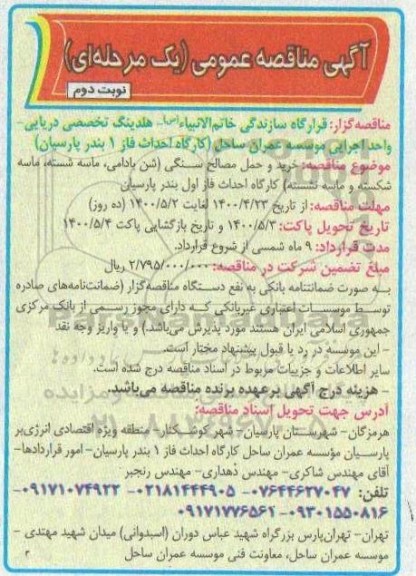 آگهی مناقصه عمومی (یک مرحله‌ای)
نوبت دوم
مناقصه‌گزار: قرارگاه سازندگی خاتم‌الانبیاء(ص)- هلدینگ تخصصی دریایی-
واحد اجرایی موسسه عمران ساحل (کارگاه احداث فاز ۱ بندر پارسیان)
موضوع مناقصه: خرید و حمل مصالح سنگی (شن بادامی، ماسه شسته، ماسه
شکسته و ماسه نشسته) کارگاه احداث فاز اول بندر پارسیان
مهلت مناقصه: از تاریخ ۱۴۰۰/۴/۲۳ لغایت ۱۴۰۰/۵/۲ (ده روز)
تاریخ تحویل پاکت: ۱۴۰۰/۵/۳ و تاریخ بازگشایی پاکت ۱۴۰۰/۵/۴
مدت قرارداد: ۹ ماه شمسی از شروع قرارداد.
مبلغ تضمین شرکت در مناقصه: ۲/۷۹۵/۰۰۰/۰۰۰ ریال
به صورت ضمانتنامه بانکی به نفع دستگاه مناقصه‌گزار (ضمانت‌نامه‌های صادره
توسط موسسات اعتباری غیربانکی که دارای مجوز رسمی از بانک مرکزی
جمهوری اسلامی ایران هستند مورد پذیرش می‌باشد.) و یا واریز وجه نقد
- این موسسه در رد یا قبول پیشنهاد مختار است.
سایر اطلاعات و جزییات مربوط در اسناد مناقصه درج شده است.
- هزینه درج آگهی بر عهده برنده مناقصه می‌باشد.
آدرس جهت تحویل اسناد مناقصه:
هرمزگان- شهرستان پارسیان- شهر کوشکنار- منطقه ویژه اقتصادی انرژی‌بر
پارسیان مؤسسه عمران ساحل کارگاه احداث فاز ۱ بندر پارسیان- امور قراردادها-
آقای مهندس شاکری- مهندس ذهداری- مهندس رنجبر
تلفن: ۰۷۶۴۴۶۲۷۰۴۷- ۰۲۱۸۱۴۴۴۹۰۵- ۰۹۱۷۱۰۷۴۹۲۲-
۰۹۳۰۱۵۵۰۸۱۶- ۰۹۱۷۱۷۷۶۵۶۱
تهران- تهران‌پارس بزرگراه شهید عباس دوران (اسبدوانی) میدان شهید مهتدی -
موسسه عمران ساحل، معاونت فنی موسسه عمران ساحل